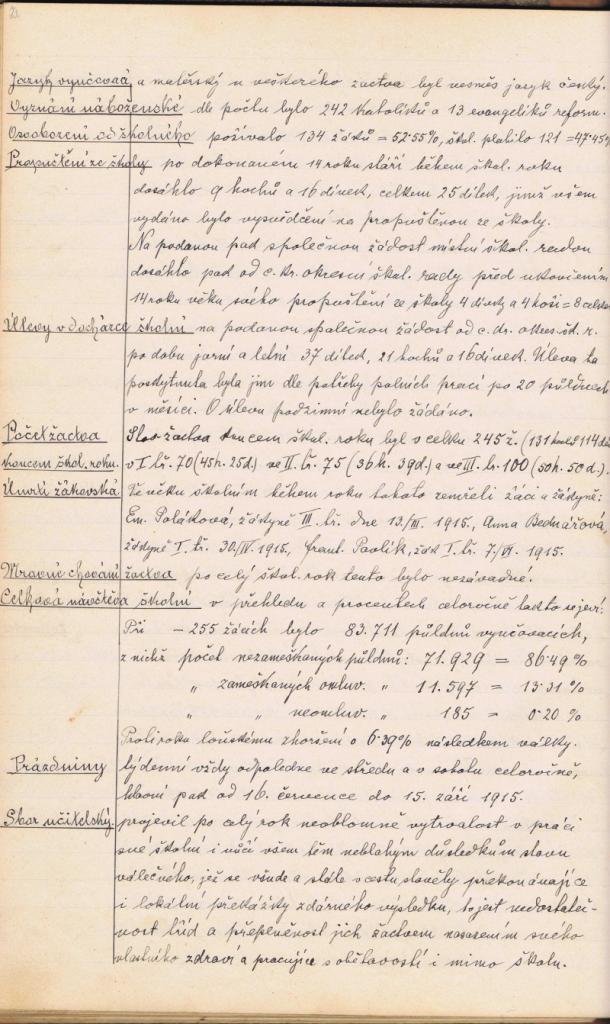 Jazyk vyučovací a mateřský u veškerého žactva byl vesměs jazyk český.
Vyznání náboženské dle počtu bylo 242 katolíků a 13 evangelíků reform.
Osvobození od školného požívalo 134 žáků = 52·55%, škol. platilo 121 = 47·45%
Propuštění ze školy po dokonaném 14 roku stáří během škol. roku
dosáhlo 9 hochů a 16 dívek, celkem 25 dítek, jimž všem
vydáno bylo vysvědčení na propuštěnou ze školy.
Na podanou pak společnou žádost místní škol. radou
dosáhlo pak od c. kr. okresní škol. rady před ukončením
14 roku věku svého propuštění ze školy 4 dívky a 4 hoši = 8 celkem
Úlevy v docházce školní na podanou společnou žádost od c. kr. okres. šk. r.
po dobu jarní a letní 37 dítek, 21 hochů a 16 dívek. Úleva ta
poskytnuta byla jim dle potřeby polních prací po 20 půldnech
v měsíci. O úlevu podzimní nebylo žádáno.
Počet žactva Stav žactva koncem škol. roku byl v celku 245 ž. (131 hochů 114 dív.
koncem škol. roku. v I. tř. 70 (45 h. 25 d.) ve II. tř. 75 (36 h. 39 d.) a ve III. tř. 100 (50 h. 50 d.).
Úmrtí žákovská Ve věku školním během roku tohoto zemřeli žáci a žákyně:
Em. Poláková, žákyně III. tř. dne 13./III. 1915., Anna Bednářová,
žákyně I. tř. 30./IV. 1915., Frant. Pavlík, žák I. tř. 7./VI. 1915.
Mravné chování žactva po celý škol. rok tento bylo nezávadné.
Celková návštěva školní v přehledu a procentech celoročně takto se jeví:
Při – 255 žácích bylo 83.711 půldnů vyučovacích,
z nichž počet nezameškaných půldnů: 71.929 = 86·49 %
„ zameškaných omluv. „ 11.597 = 13·31 %
„ „ neomluv. „ 185 = 0·20 %
Proti roku loňskému zhoršení o 6·39% následkem války.
Prázdniny týdenní vždy odpoledne ve středu a v sobotu celoročně,
hlavní pak od 16. července do 15. září 1915.
Sbor učitelský projevil po celý rok neoblomně vytrvalost v práci
své školní i vůči všem těm neblahým důsledkům stavu
válečného, jež se všude a stále v cestu stavěly překonávajíce
i lokální překážky zdárného výsledku, to jest nedostateč-
nost tříd a přeplněnost jich žactvem nasazením svého
vlastního zdraví a pracujíce s obětavostí i mimo školu.